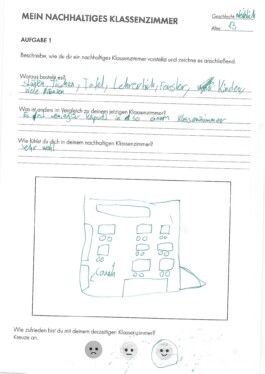 MEIN NACHHALTIGES KLASSENZIMMER
Geschlecht: weiblich
Alter: 13
AUFGABE 1
Beschreibe, wie du dir ein nachhaltiges Klassenzimmer vorstellst und zeichne es anschließend.
Woraus besteht es?
Stühlen, Tischen, Tafel, Lehrertisch, Fenster, Kinder
viele
Was ist anders im Vergleich zu deinem jetzigen Klassenzimmer?
Es ist weniger kaputt als in unserem Klassenzimmer
Wie fühlst du dich in deinem nachhaltigen Klassenzimmer?
Sehr wohl
Couch
Wie zufrieden bist du mit deinem derzeitigen Klassenzimmer?
Kreuze an.